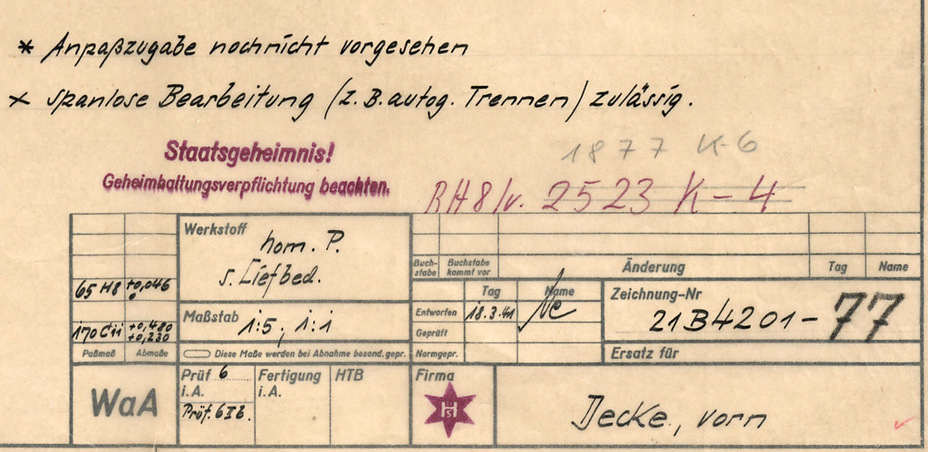 * Anpaßzugabe noch nicht vorgesehen
× spanlose Bearbeitung (z.B. autog. Trennen) zulässig.
Staatsgeheimnis!
Geheimhaltungsverpflichtung beachten.
1877 K-6
RH8/v. 2523 K-4
Werkstoff
hom. P.
s. Liefbed.
65 H8 +0,046
0
170 C11 +0,480
+0,230
Paßmaß Abmaße
Maßstab
1:5, 1:1
Diese Maße werden bei Abnahme besond. gepr.
Buch-
stabe
Buchstabe
kommt vor
Änderung
Tag
Name
Tag
Name
Entworfen 18.3.41
Geprüft
Normgepr.
Zeichnung-Nr
21B4201-77
Ersatz für
WaA
Prüf 6
i.A.
Prüf. 6IIb.
Fertigung
i.A.
HTB
Firma
H
Decke, vorn